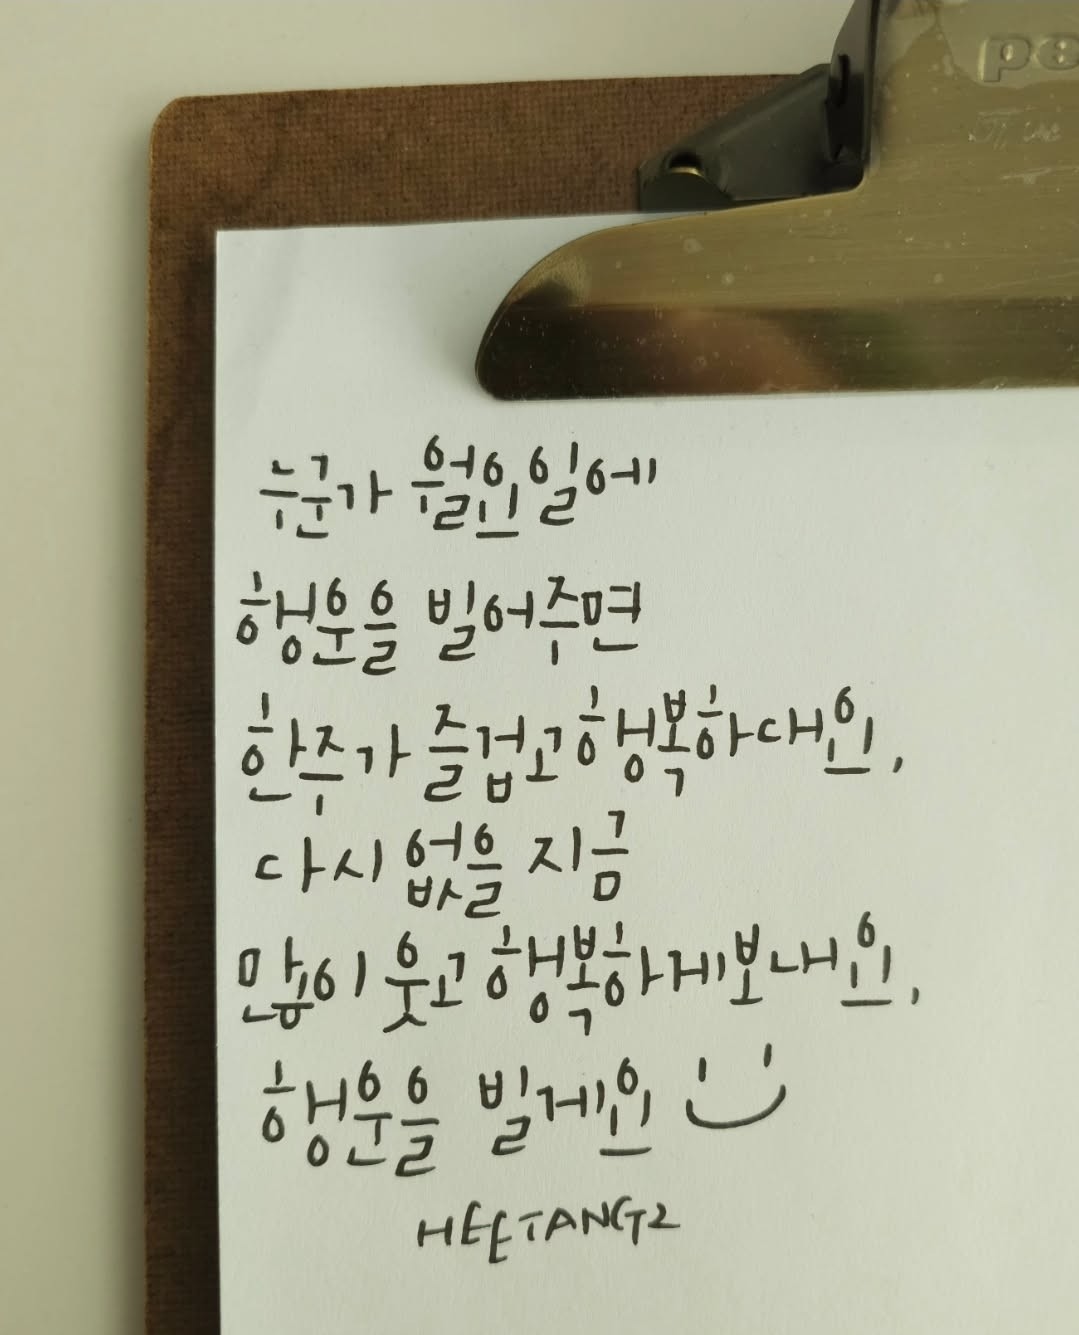 누군가 월요일에
행운을 빌어주면
한주가 즐겁고 행복하대요,
다시 없을 지금
많이 웃고 행복하게 보내요,
행운을 빌게요
HEETANG2